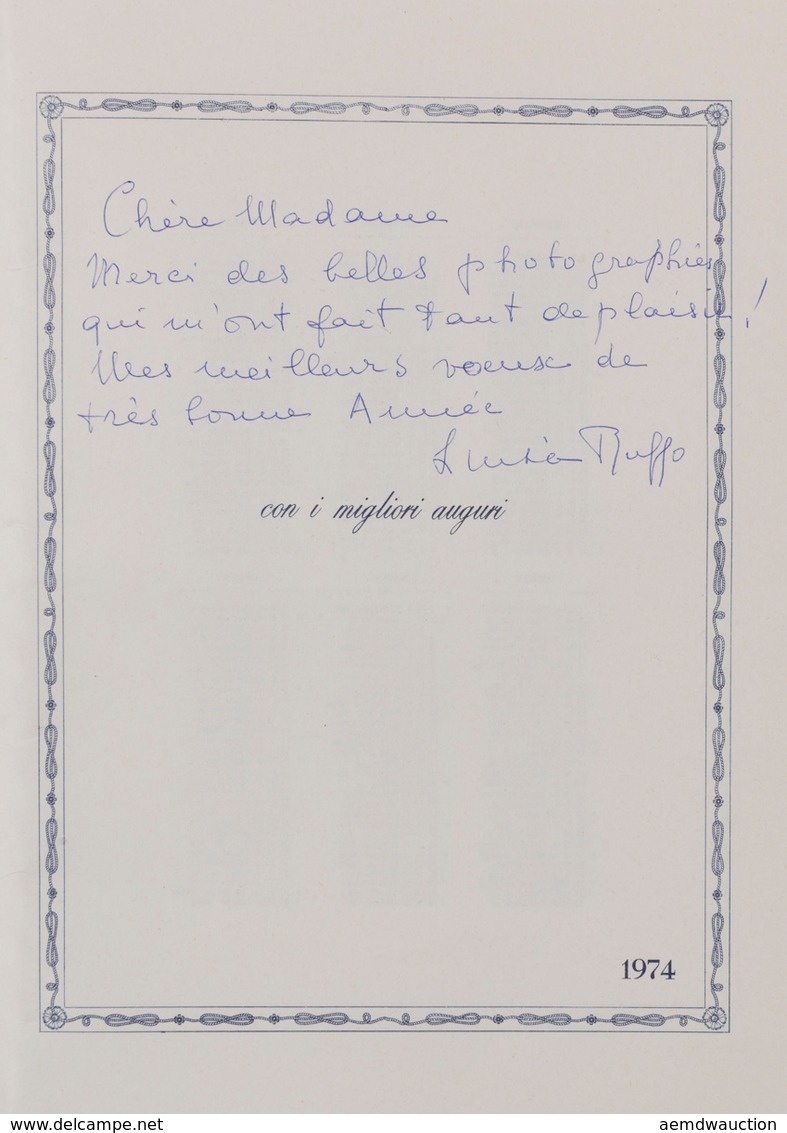 Chère Madame
Merci des belles photographies
qui m'ont fait tant de plaisir!
Mes meilleurs voeux de
très bonne Année
Ruffo
con i migliori auguri
1974
www.delcampe.net
aemdwauction